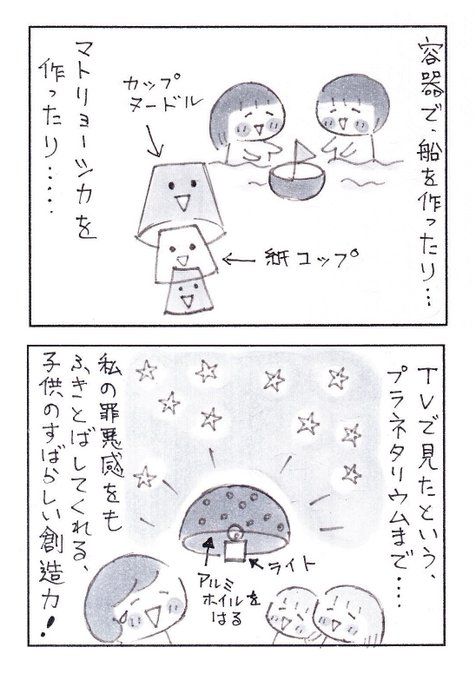 容器で、船を作ったり…
カップ
ヌードル
マトリョーシカを
作ったり……
紙コップ
TVで見たという、
プラネタリウムまで…
ライト
アルミ
ホイルを
はる
私の罪悪感をも
ふきとばしてくれる、
子供のすばらしい創造力!